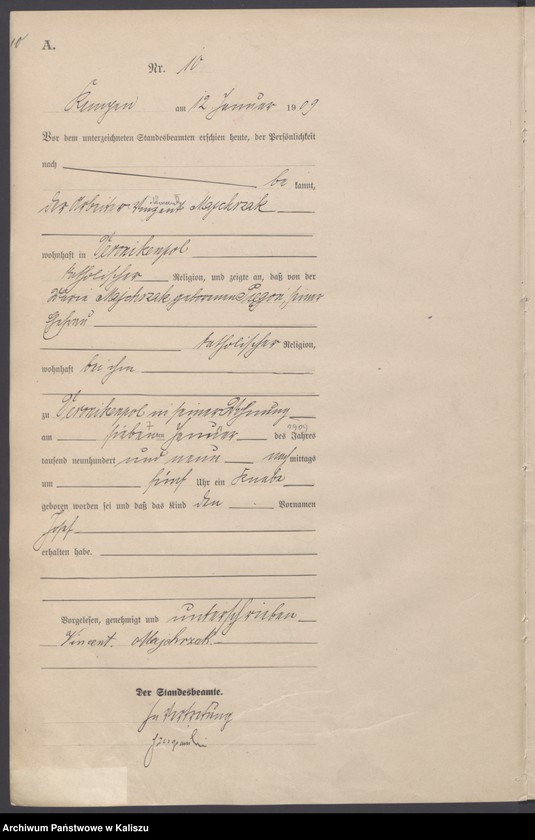 10
A.
Nr. 10
Kempen am 12 Januar 1909
Vor dem unterzeichneten Standesbeamten erschien heute, der Persönlichkeit
nach
be kannt,
der Arbeiter Vinzent Majchrzak
wohnhaft in Weronikenpol
katholischer Religion, und zeigte an, daß von der
Maria Majchrzak geborenen seiner
Ehefrau
katholischer Religion,
wohnhaft bei ihm
zu Weronikenpol in seiner Wohnung
am siebten Januar des Jahres
1909
tausend neunhundert und neun nach mittags
um fünf Uhr ein Knabe
geboren worden sei und daß das Kind den Vornamen
Josef
erhalten habe.
Vorgelesen, genehmigt und unterschrieben
Vincent Majchrzak
Der Standesbeamte.
In Vertretung
Archiwum Państwowe w Kaliszu